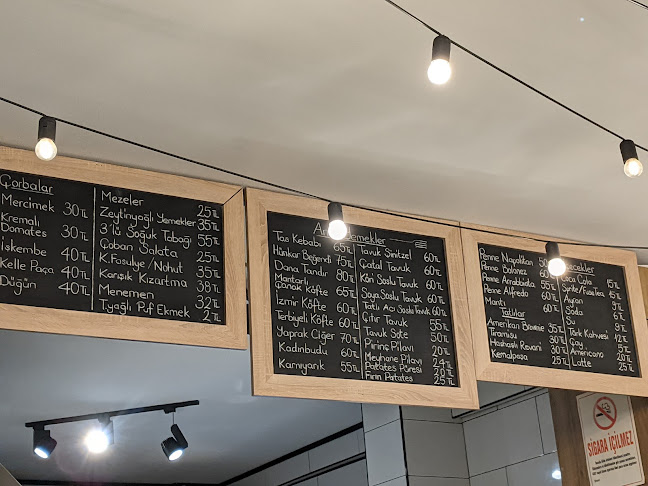 Çorbalar
Mercimek 30TL
Kremalı
Domates 30TL
İşkembe 40TL
Kelle Paça 40TL
Düğün 40TL
Mezeler 25TL
Zeytinyağlı Yemekler 35TL
3'lü Soğuk Tabağı 55TL
Çoban Salata 25TL
K.Fasulye/Nohut 35TL
Karışık Kızartma 38TL
Menemen 32TL
T.yağlı Puf Ekmek 2TL
Tas Kebabı 65TL
Hünkar Beğendi 75TL
Dana Tandır 80TL
Mantarlı
Çanak Köfte 65TL
İzmir Köfte 60TL
Terbiyeli Köfte 60TL
Yaprak Ciğer 70TL
Kadınbudu 60TL
Karnıyarık 55TL
Tavuk Şinitzel 60TL
Çatal Tavuk 60TL
Köri Soslu Tavuk 60TL
Soya Soslu Tavuk 60TL
Tatlı Acı Soslu Tavuk 60TL
Çıtır Tavuk 55TL
Tavuk Sote 50TL
Pirinç Pilavı 20TL
Meyhane Pilavı 24TL
Patates Püresi 20TL
Fırın Patates 25TL
Penne Napolitan 50TL
Penne Bolonez 60TL
Penne Arrabbiata 55TL
Penne Alfredo 60TL
Mantı 60TL
Tatlılar
Amerikan Brownie 35TL
Tiramisu 30TL
Haşhaşlı Revani 30TL
Kemalpaşa 25TL
Coca Cola 15TL
Ayran 9TL
Soda
Su
Türk Kahvesi 12TL
Çay 5TL
Americano 20TL
Latte 25TL
SİGARA İÇİLMEZ